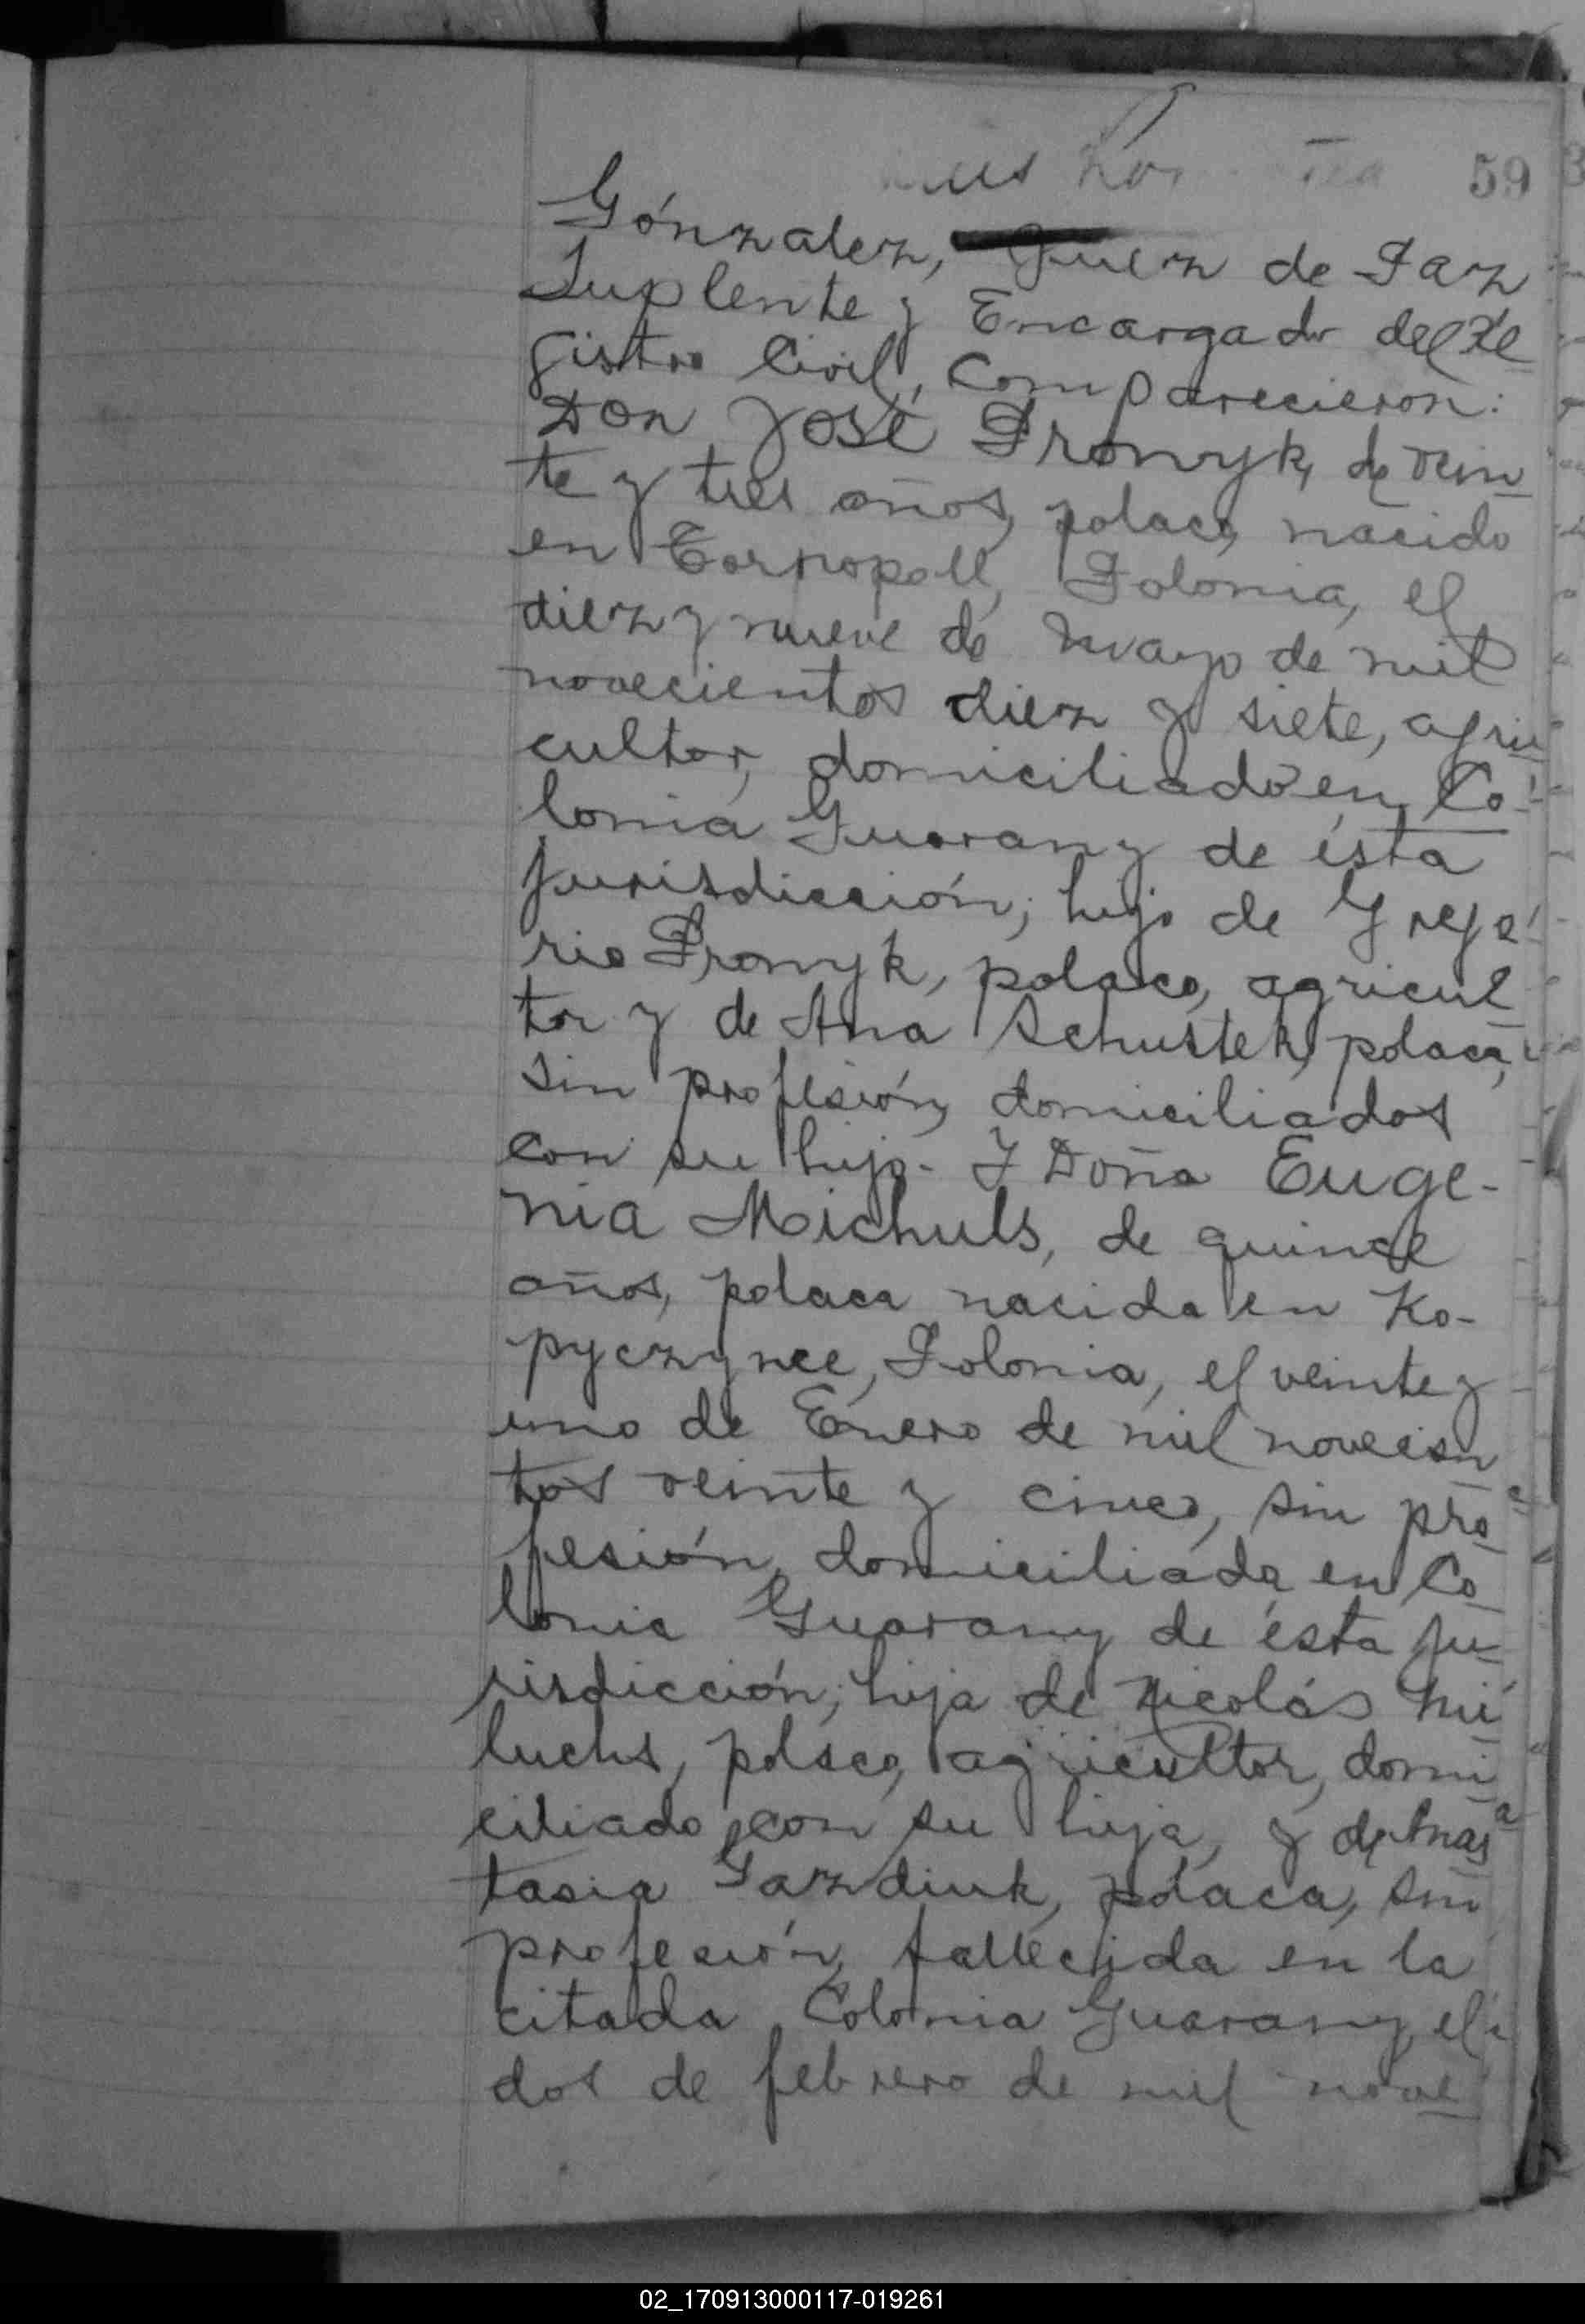 59
Gónzalez, Juez de Paz
Suplente y Encargado del Re
gistro Civil, Comparecieron:
Don José Pronyk, de vein
te y tres años, polaco, nacido
en Tornopoll, Polonia, el
diez y nueve de Mayo de mil
novecientos diez y siete, agri
cultor, domiciliado en Co-
lonia Guarany de ésta
jurisdicción; hijo de Grego
rio Pronyk, polaco, agricul
tor y de Ana Schustek, polaca,
sin profesión, domiciliados
con su hijo.- Y Doña Euge-
nia Michuls, de quince
años, polaca nacida en Ko-
pyczynce, Polonia, el veinte y
uno de Enero de mil novecien
tos veinte y cinco, sin pro
fesión, domiciliada en Co
lonia Guarany de ésta ju
risdicción; hija de Nicolás Mi
luchs, polaco, agricultor, domi
ciliado con su hija, y de Anas
tasia Gazdiuk, polaca, sin
profesión, fallecida en la
citada Colonia Guarany, el
dos de febrero de mil nove
02_170913000117-019261